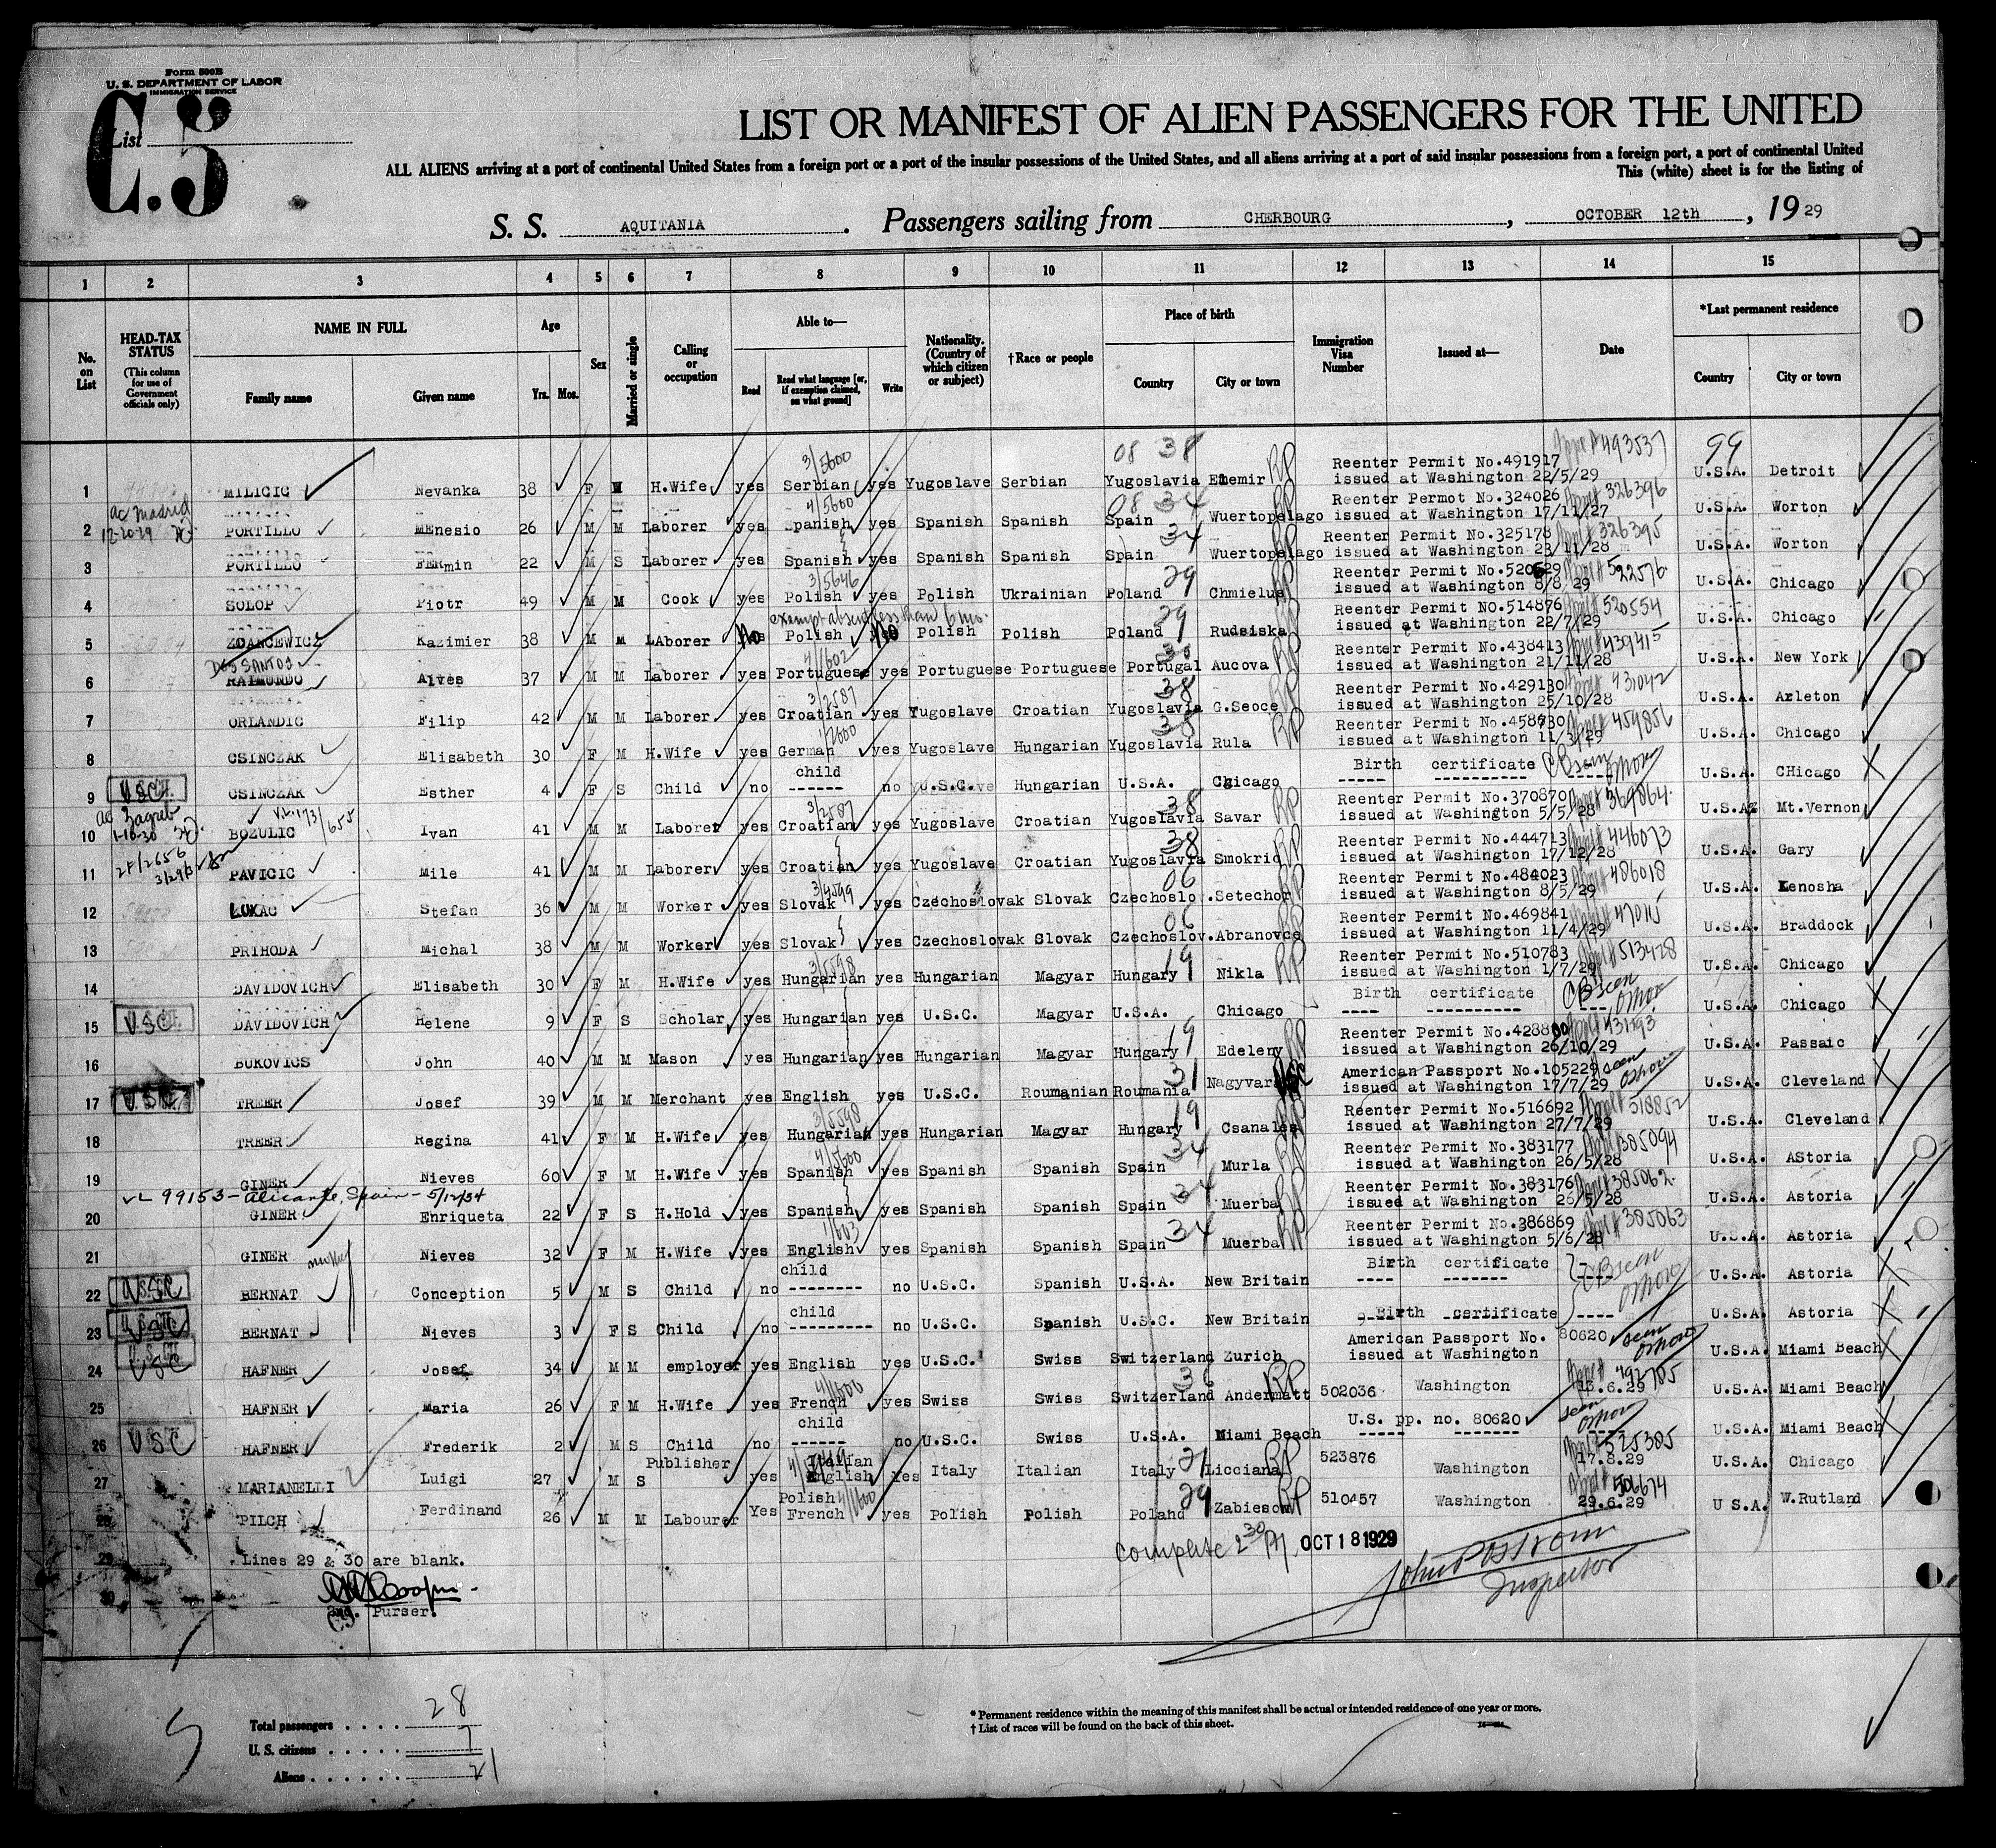 Form 500B
U. S. DEPARTMENT OF LABOR
IMMIGRATION SERVICE
List C.5
LIST OR MANIFEST OF ALIEN PASSENGERS FOR THE UNITED
ALL ALIENS arriving at a port of continental United States from a foreign port or a port of the insular possessions of the United States, and all aliens arriving at a port of said insular possessions from a foreign port, a port of continental United
This (white) sheet is for the listing of
S. S. AQUITANIA. Passengers sailing from CHERBOURG, OCTOBER 12th, 1929
1 2 3 4 5 6 7 8 9 10 11 12 13 14 15
No. on List
HEAD-TAX STATUS (This column for use of Government officials only)
NAME IN FULL Family name Given name
Age Yrs. Mos.
Sex
Married or single
Calling or occupation
Able to— Read Read what language [or, if exemption claimed, on what ground] Write
Nationality. (Country of which citizen or subject)
†Race or people
Place of birth Country City or town
Immigration Visa Number
Issued at—
Date
*Last permanent residence Country City or town
08 38 99
3/5600
1 MILICIC Nevanka 38 F M H.Wife yes Serbian yes Yugoslave Serbian Yugoslavia Elemir RP Reenter Permit No.491917 issued at Washington 22/5/29 493537 U.S.A. Detroit
ac Madrid 12-20-29
4/5600 08 34
2 PORTILLO MEnesio 26 M M Laborer yes Spanish yes Spanish Spanish Spain Wuertopelago RP Reenter Permot No.324026 issued at Washington 17/11/27 326396 U.S.A. Worton
34
3 PORTILLO FERmin 22 M S Laborer yes Spanish yes Spanish Spanish Spain Wuertopelago Reenter Permit No.325178 issued at Washington 23/11/28 326395 U.S.A. Worton
3/5646 29
4 SOLOP Piotr 49 M M Cook yes Polish yes Polish Ukrainian Poland Chmielus RP Reenter Permit No.520629 issued at Washington 8/8 29 522576 U.S.A. Chicago
exempt absent less than 6 mo. 29
5 ZDANCEWICZ Kazimier 38 M M LAborer No Polish No Polish Polish Poland Rudsiska RP Reenter Permit No.514876 issued at Washington 22/7/29 520554 U.S.A. Chicago
DOS SANTOS
4/1602
6 RAIMUNDO Alves 37 M M Laborer yes Portuguese yes Portuguese Portuguese Portugal Aucova RP Reenter Permit No.438413 issued at Washington 21/11/28 439415 U.S.A. New York
3/2587 38
7 ORLANDIC Filip 42 M M Laborer yes Croatian yes Yugoslave Croatian Yugoslavia G.Seoce RP Reenter Permit No.429130 issued at Washington 25/10/28 431042 U.S.A. Arleton
38
8 CSINCZAK Elisabeth 30 F M H.Wife yes German yes Yugoslave Hungarian Yugoslavia Rula RP Reenter Permit No.458730 issued at Washington 11/3/29 459856 U.S.A. Chicago
child
USC
9 CSINCZAK Esther 4 F S Child no ------ no U.S.C. Hungarian U.S.A. Chicago Birth certificate U.S.A. CHicago
ac Zagreb 1-16-30
3/2587 38
10 BOZULIC Ivan 41 M M Laborer yes Croatian yes Yugoslave Croatian Yugoslavia Savar RP Reenter Permit No.370870 issued at Washington 5/5/28 369864 U.S.A. Mt.Vernon
38
11 PAVICIC Mile 41 M M Laborer yes Croatian yes Yugoslave Croatian Yugoslavia Smokric RP Reenter Permit No.444713 issued at Washington 17/12/28 446073 U.S.A. Gary
3/4599 06
12 LUKAC Stefan 36 M M Worker yes Slovak yes Czechoslovak Slovak Czechoslo. Setechor RP Reenter Permit No.484023 issued at Washington 8/5/29 486018 U.S.A. Kenosha
06
13 PRIHODA Michal 38 M M Worker yes Slovak yes Czechoslovak Slovak Czechoslov. Abranovce RP Reenter Permit No.469841 issued at Washington 11/4/29 U.S.A. Braddock
3/5598 19
14 DAVIDOVICH Elisabeth 30 F M H.Wife yes Hungarian yes Hungarian Magyar Hungary Nikla RP Reenter Permit No.510783 issued at Washington 1/7/29 513428 U.S.A. Chicago
USC
15 DAVIDOVICH Helene 9 F S Scholar yes Hungarian yes U.S.C. Magyar U.S.A. Chicago Birth certificate U.S.A. Chicago
19
16 BUKOVICS John 40 M M Mason yes Hungarian yes Hungarian Magyar Hungary Edeleny RP Reenter Permit No.428800 issued at Washington 26/10/29 U.S.A. Passaic
USC 31
17 TREER Josef 39 M M Merchant yes English yes U.S.C. Roumanian Roumania Nagyvarad American Passport No.105229 issued at Washington 17/7/29 seen U.S.A. Cleveland
3/5598 19
18 TREER Regina 41 F M H.Wife yes Hungarian yes Hungarian Magyar Hungary Csanales RP Reenter Permit No.516692 issued at Washington 27/7/29 518852 U.S.A. Cleveland
4/5600 34
19 GINER Nieves 60 F M H.Wife yes Spanish yes Spanish Spanish Spain Murla RP Reenter Permit No.383177 issued at Washington 26/5/28 385094 U.S.A. AStoria
VL 99153 - Alicante, Spain - 5/12/34
34
20 GINER Enriqueta 22 F S H.Hold yes Spanish yes Spanish Spanish Spain Muerba RP Reenter Permit No.383176 issued at Washington 26/5/28 385062 U.S.A. Astoria
1/603 34
21 GINER Nieves 32 F M H.Wife yes English yes Spanish Spanish Spain Muerba RP Reenter Permit No.386869 issued at Washington 5/6/28 385063 U.S.A. Astoria
mother
child
USC
22 BERNAT Conception 5 M S Child no -------- no U.S.C. Spanish U.S.A. New Britain Birth certificate U.S.A. Astoria
child
USC
23 BERNAT Nieves 3 F S Child no --------- no U.S.C. Spanish U.S.C. New Britain Birth certificate U.S.A. Astoria
USC
24 HAFNER Josef 34 M M employer yes English yes U.S.C. Swiss Switzerland Zurich American Passport No. 80620 issued at Washington seen U.S.A. Miami Beach
25 HAFNER Maria 26 F M H.Wife yes French yes Swiss Swiss Switzerland Andermatt RP 502036 Washington 13.6.29 U.S.A. Miami Beach
child
USC
26 HAFNER Frederik 2 M S Child no ------ no U.S.C. Swiss U.S.A. Miami Beach U.S. pp. no. 80620 seen U.S.A. Miami Beach
27 MARIANELLI Luigi 27 M S Publisher yes Italian English yes Italy Italian Italy Licciana RP 523876 Washington 17.8.29 525385 U.S.A. Chicago
29
28 PILCH Ferdinand 26 M M Labourer Yes Polish French yes Polish Polish Poland Zabiesom RP 510457 Washington 29.6.29 506674 U S.A. W.Rutland
29 Lines 29 & 30 are blank.
complete 2 30 PM OCT 18 1929
30
2nd. Purser.
Inspector
Total passengers . . . . 28
U. S. citizens . . . . . 7
Aliens . . . . . . 21
* Permanent residence within the meaning of this manifest shall be actual or intended residence of one year or more.
† List of races will be found on the back of this sheet.